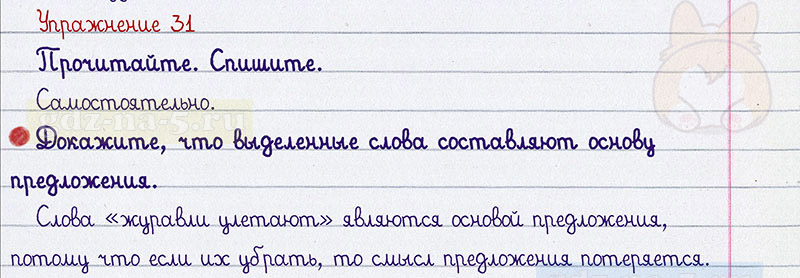 Упражнение 31
Прочитайте. Спишите.
Самостоятельно.
gdz-na-5.ru
Докажите, что выделенные слова составляют основу
предложения.
Слова «журавли улетают» являются основой предложения,
потому что если их убрать, то смысл предложения потеряется.